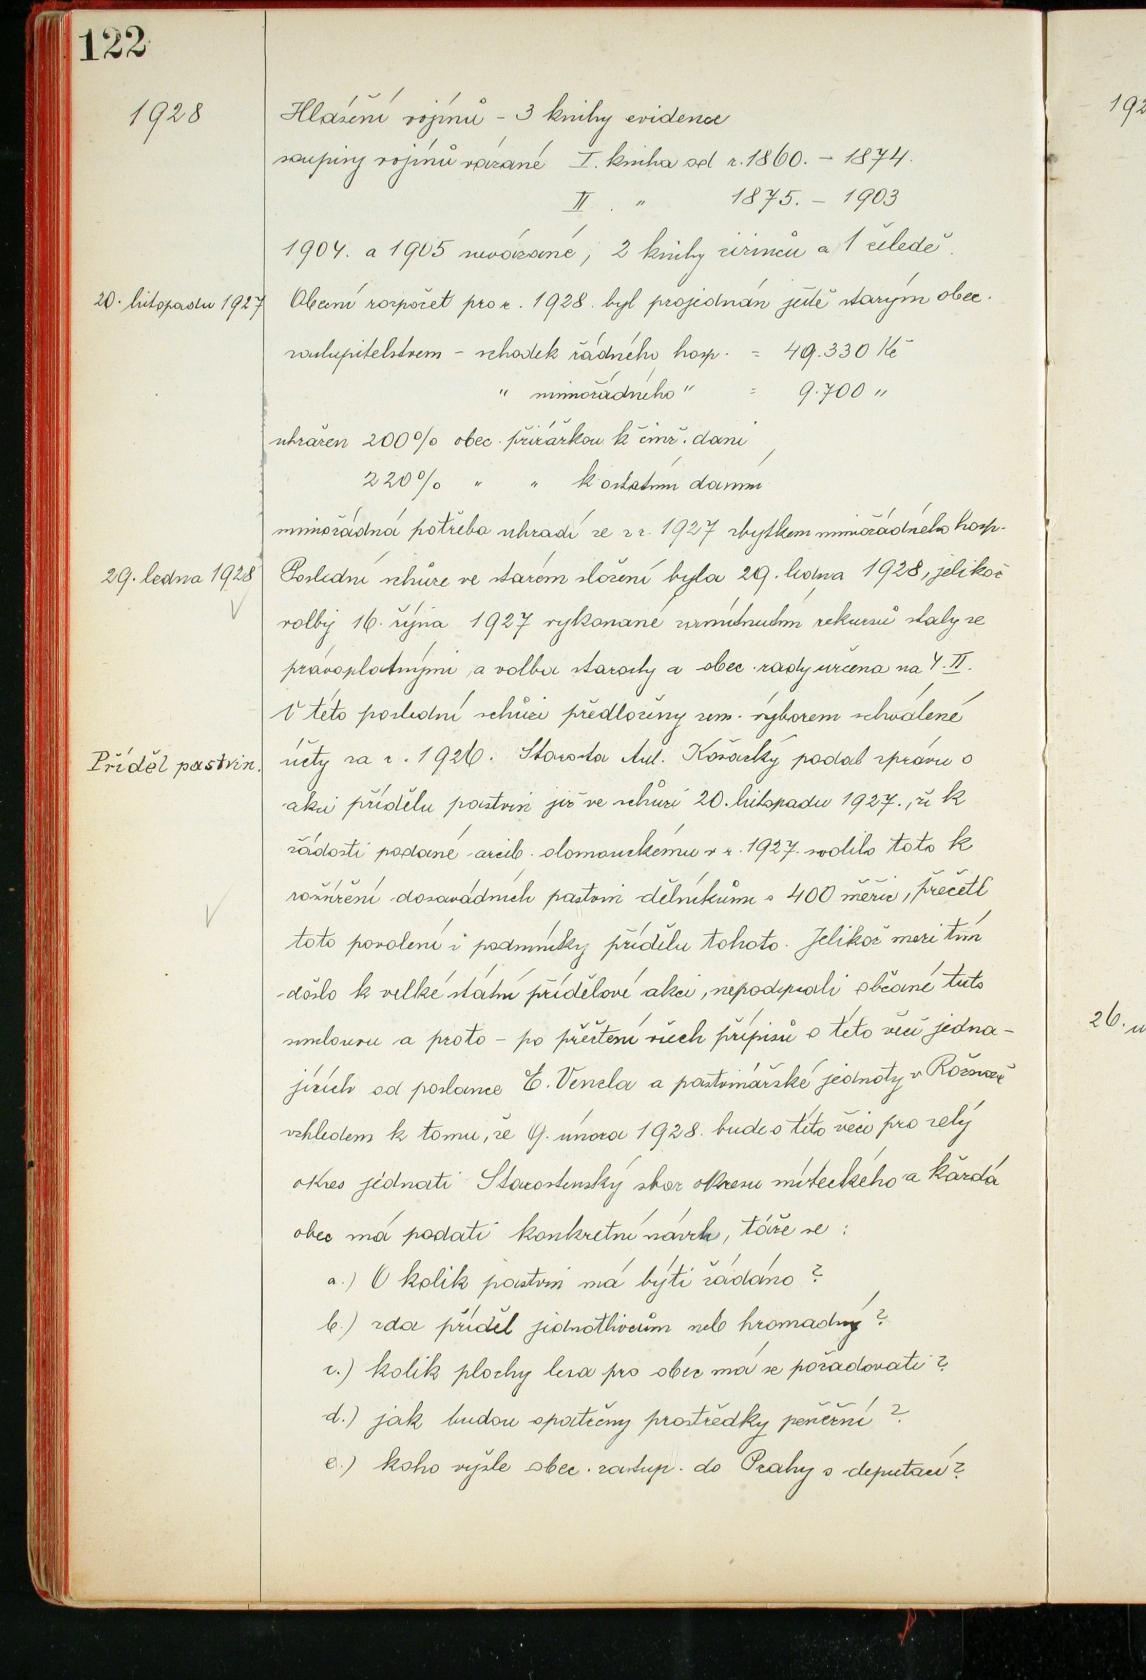 122
1928
Hlášení vojínů – 3 knihy evidence
soupisy vojínů vázané I. kniha od r. 1860. – 1874.
II. „ 1875. – 1903
1904. a 1905 nevázané, 2 knihy cizinců a 1 čeledě.
20. listopadu 1927
Obecní rozpočet pro r. 1928. byl projednán ještě starým obec.
zastupitelstvem – schodek řádného hosp. = 49.330 Kč
„ mimořádného „ = 9.700 „
uhražen 200% obec. přirážkou k činž. dani
220% „ „ k ostatním daním
mimořádná potřeba uhradí se z r. 1927 zbytkem mimořádného hosp.
29. ledna 1928
Poslední schůze ve starém složení byla 29. ledna 1928, jelikož
volby 16. října 1927 vykonané zamítnutím rekursů staly se
právoplatnými a volba starosty a obec. rady určena na 4. II.
V této poslední schůzi předloženy zem. výborem schválené
Příděl pastvin.
účty za r. 1926. Starosta Aul. Kovařský podal zprávu o
akci přídělu pastvin již ve schůzi 20. listopadu 1927., že k
žádosti podané arcib. olomouckému v r. 1927. svolilo toto k
rozšíření dosavádních pastvin dělníkům o 400 měřic, přečetl
toto povolení i podmínky přídělu tohoto. Jelikož mezi tím
došlo k velké státní přídělové akci, nepodepsali občané tuto
smlouvu a proto – po přečtení všech přípisů o této věci jedna-
jících od poslance E. Vencla a pastvinářské jednoty v Rožnově
vzhledem k tomu, že 9. února 1928. bude o této věci pro celý
okres jednati Starostenský sbor okresu místeckého a každá
obec má podati konkretní návrh, táže se:
a.) O kolik pastvin má býti žádáno?
b.) zda příděl jednotlivcům neb hromadný?
c.) kolik plochy lesa pro obec má se požadovati?
d.) jak budou opatřeny prostředky peněžní?
e.) koho vyšle obec. zastup. do Prahy s deputací?
192
26. u